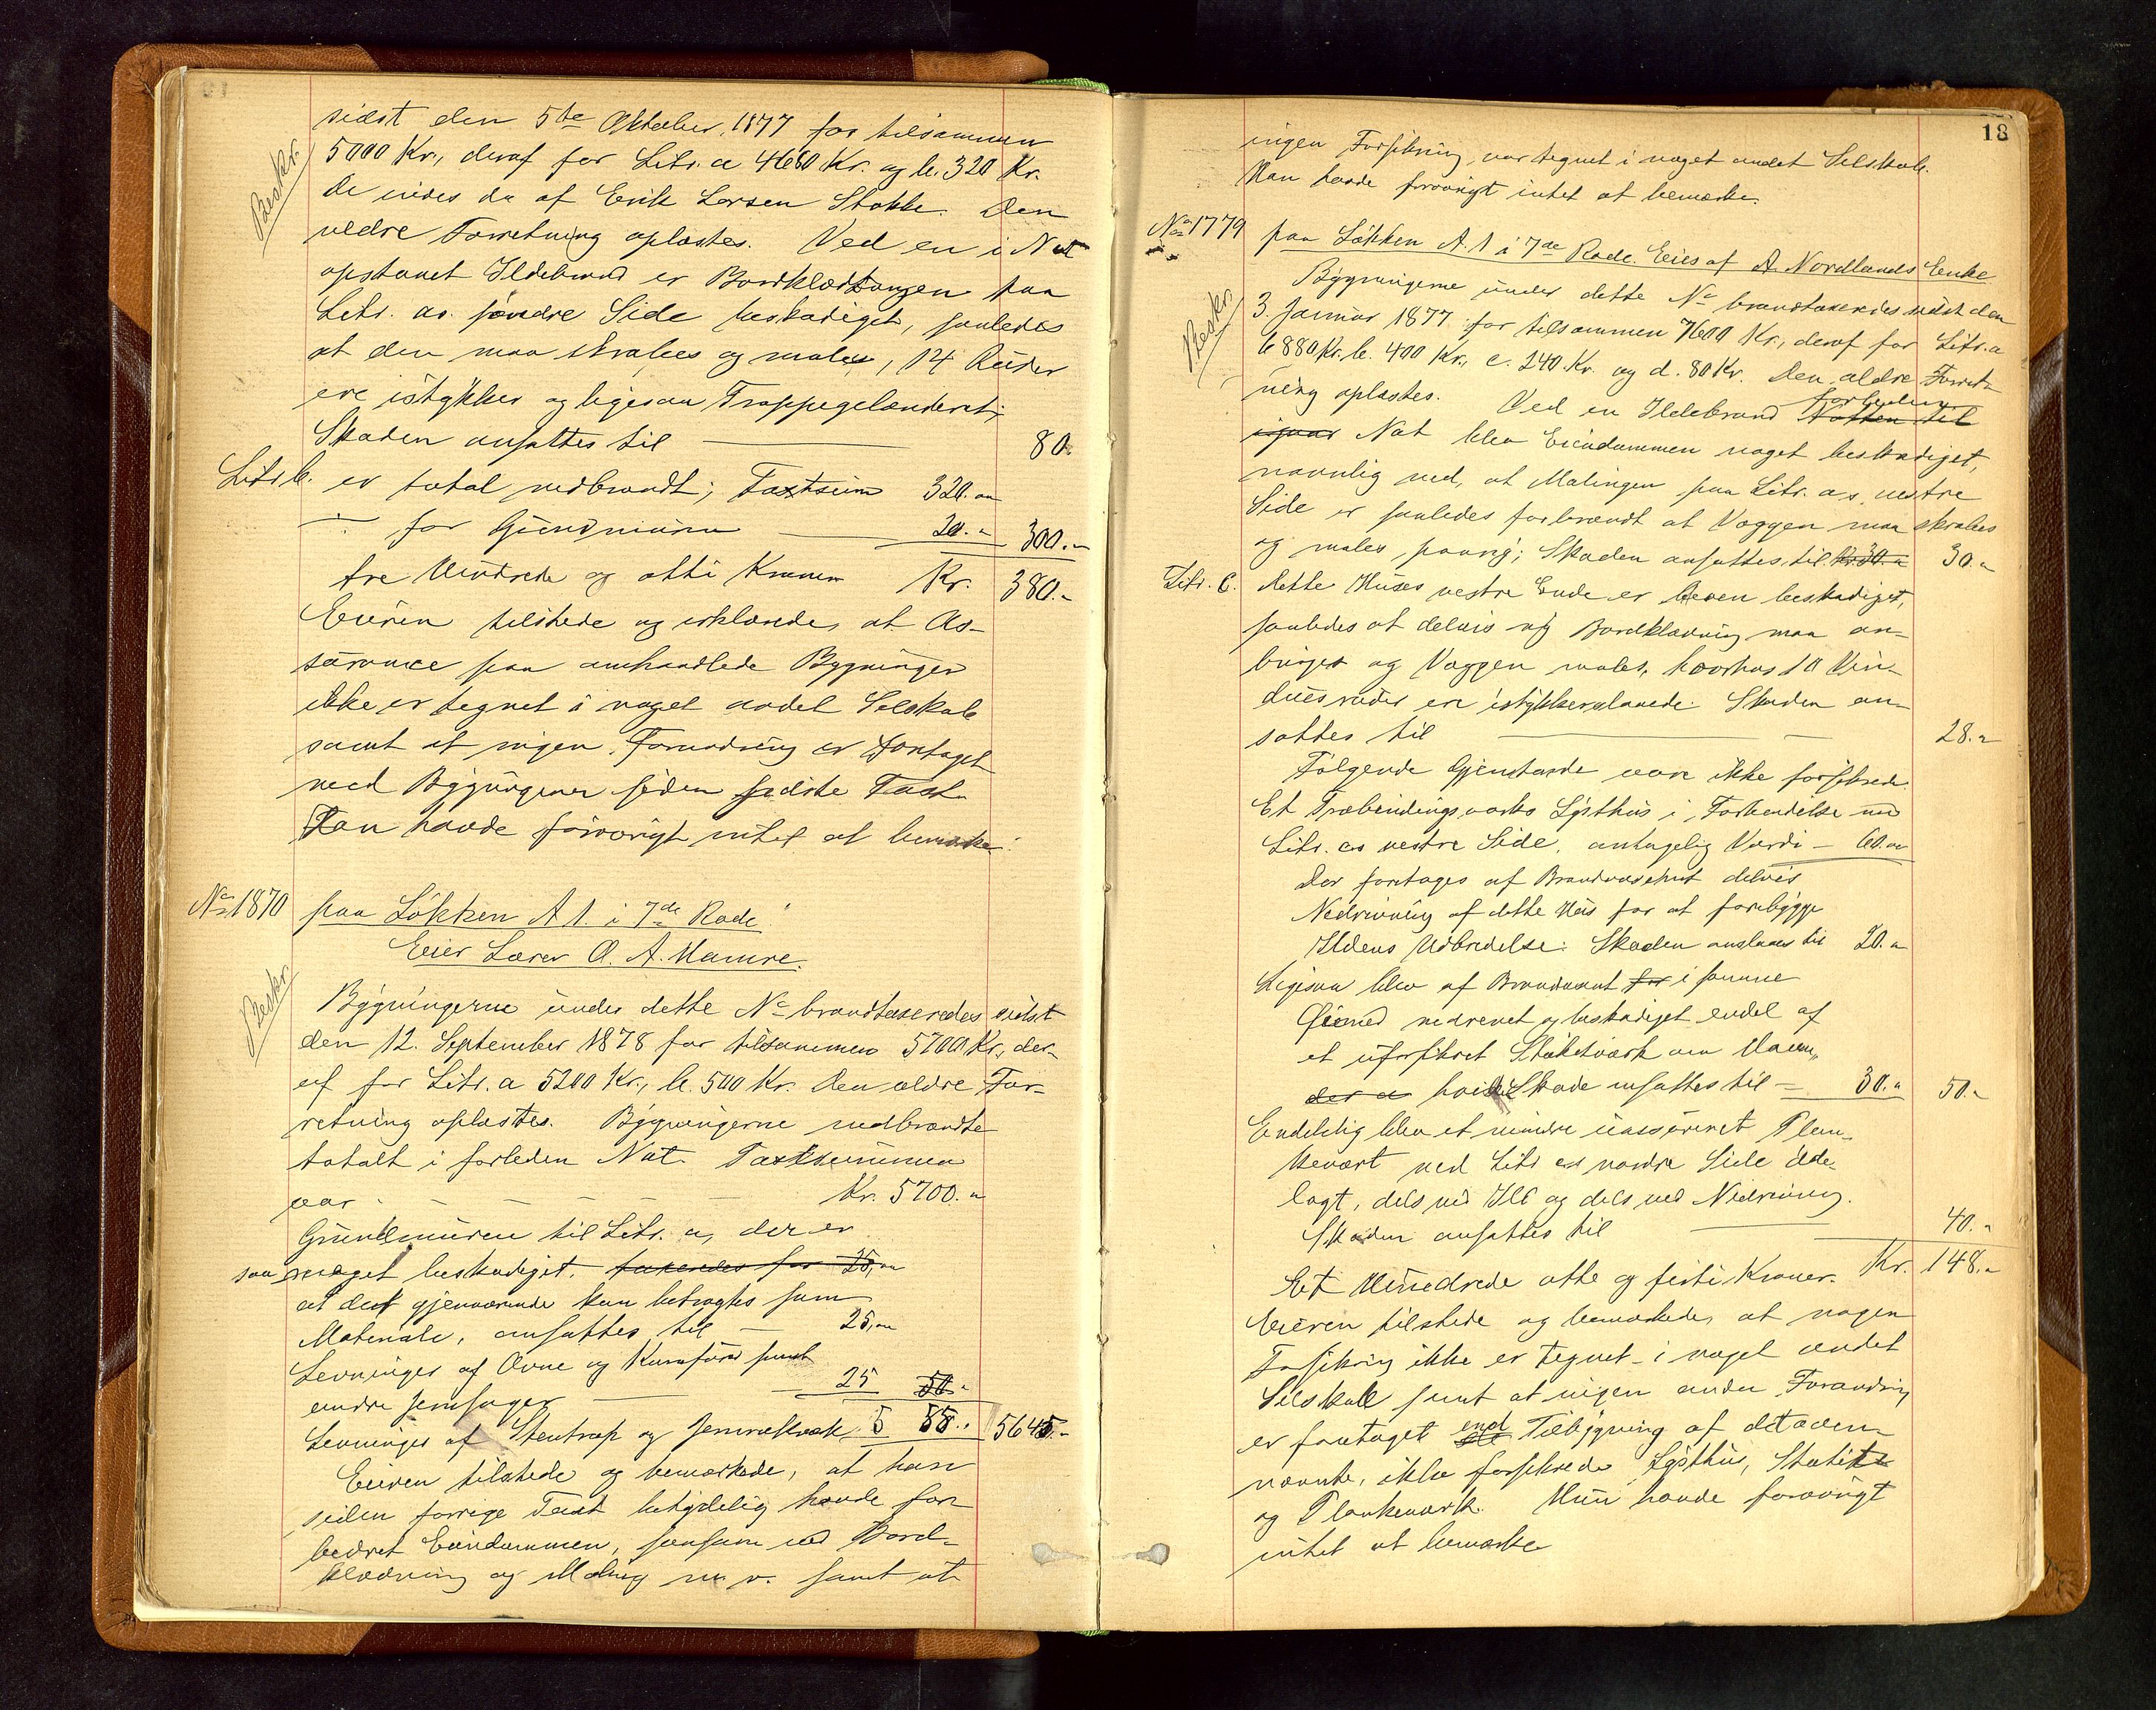 sidst den 5te Oktober 1877 for tilsammen
Beskr.
5000 Kr., deraf for Litr. a 4680 Kr. og b. 320 Kr.
De eiedes da af Erik Larsen Stokke. Den
ældre Forretning oplæstes. Ved en i Nat
opstaaet Ildebrand er Bordklædningen paa
Litr. as. søndre Side beskadiget, saaledes
at den maa skrabes og males, 14 Ruder
ere istykker og ligesaa Trappegelænderet;
Skaden ansattes til — 80.
Litr. b. er total nedbrændt; Taxtsum 320.„
÷ for Grundmuren — 20.„ 300.„
tre Hundrede og otti Kroner Kr. 380.„
Eieren tilstede og erklærede, at As-
surance paa omhandlede Bygninger
ikke er tegnet i noget andet Selskab
samt at ingen Forandring er foretaget
med Bygningerne siden sidste Taxt.
Han havde forøvrigt intet at bemærke.
No 1870 paa Løkken A 1. i 7de Rode
Eier Lærer O. A. Hamre.
Beskr.
Bygningerne under dette No brandtaxeredes sidst
den 12. September 1878 for tilsammen 5700 Kr., der-
af for Litr. a 5200 Kr., b. 500 Kr. Den ældre For-
retning oplæstes. Bygningerne nedbrændte
totalt i forleden Nat. Taxtsummen
var — Kr. 5700.„
Grundmuren til Litr. a, der er
saa meget beskadiget, taxeredes for 25,„
at det gjenværende kun betragtes som
Materiale, ansattes til — 25,„
Levninger af Ovne og Komfur samt
andre Jernsager — 25 50.„
Levninger af Stentrap og Jernrækværk 5 55.„ 5645.„
Eieren tilstede og bemærkede, at han
siden forrige Taxt betydelig havde for-
bedret Eiendommen, saasom ved Bord-
klædning og Maling m. v. samt at
18
ingen Forsikring var tegnet i noget andet Selskab.
Han havde forøvrigt intet at bemærke.
No 1779 paa Løkken A. 1 i 7de Rode. Eies af A. Nordlunds Enke
Beskr.
Bygningerne under dette No brandtaxeredes sidst den
3. Januar 1877 for tilsammen 7600 Kr., deraf for Litr. a
6880 Kr. b. 400 Kr., c. 240. Kr. og d. 80 Kr. Den ældre Forret-
ning oplæstes. Ved en Ildebrand forleden Natten til
igaar Nat blev Eiendommen noget beskadiget,
navnlig ved, at Malingen paa Litr. a's vestre
Side er saaledes forbrændt at Væggen maa skrabes
og males paany; Skaden ansattes til Kr. 30.„ 30.„
Litr. C. dette Huses vestre Ende er bleven beskadiget,
saaledes at delvis ny Bordklædning maa an-
bringes og Væggen males, hvorhos 10 Vin-
duesruder ere istykkerslaaede. Skaden an-
sattes til — 28.„
Følgende Gjenstande vare ikke forsikrede.
Et Træbindingsværks Lysthus i Forbindelse med
Litr. as vestre Side, antagelig Værdi — 60.„
Der foretages af Brandvæsenet delvis
Nedrivning af dette Hus for at forebygge
Ildens Udbredelse. Skaden ansloges til 20.„
Ligesaa blev af Brandvæsenet for i samme
Øiemed nedrevet og beskadiget endel af
et uforsikret Stakitværk om Haven,
der a hvis Skade ansattes til — 30.„ 50.„
Endelig blev et mindre uassureret Plan-
keværk ved Litr as nordre Side øde-
lagt, dels ved Ild og dels ved Nedrivning.
Skaden ansattes til — 40.„
Et Hundrede otte og firti Kroner. Kr. 148.„
Eieren tilstede og bemærkede, at nogen
Forsikring ikke er tegnet i noget andet
Selskab samt at ingen anden Forandring
er foretaget end Tilbygning af det oven-
nævnte, ikke forsikrede Lysthus, Stakit
og Plankeværk. Hun havde forøvrigt
intet at bemærke